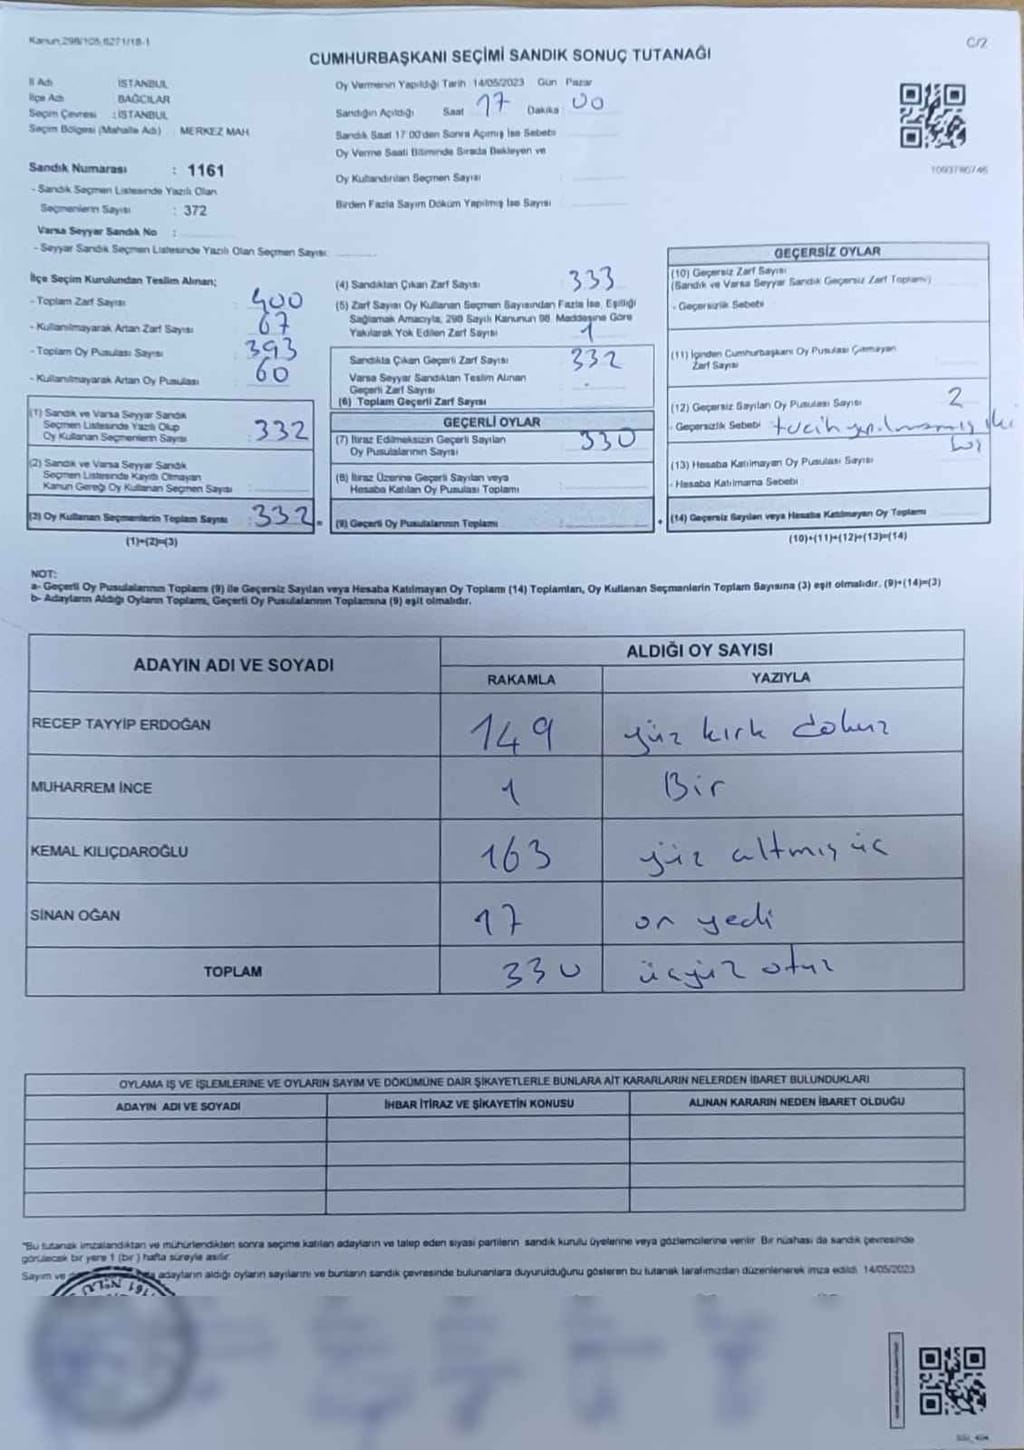 Kanun:298/105,6271/18-1
C/2
CUMHURBAŞKANI SEÇİMİ SANDIK SONUÇ TUTANAĞI
İl Adı İSTANBUL
İlçe Adı BAĞCILAR
Seçim Çevresi : İSTANBUL
Seçim Bölgesi (Mahalle Adı) : MERKEZ MAH.
Sandık Numarası : 1161
- Sandık Seçmen Listesinde Yazılı Olan
Seçmenlerin Sayısı : 372
Varsa Seyyar Sandık No :
- Seyyar Sandık Seçmen Listesinde Yazılı Olan Seçmen Sayısı:
Oy Vermenin Yapıldığı Tarih : 14/05/2023 Gün : Pazar
Sandığın Açıldığı Saat 17 Dakika : 00
Sandık Saat 17:00'den Sonra Açımış İse Sebebi
Oy Verme Saati Bitiminde Sırada Bekleyen ve
Oy Kullandırılan Seçmen Sayısı
Birden Fazla Sayım Döküm Yapılmış İse Sayısı
1093786746
İlçe Seçim Kurulundan Teslim Alınan;
- Toplam Zarf Sayısı : 400
- Kullanılmayarak Artan Zarf Sayısı : 67
- Toplam Oy Pusulası Sayısı : 393
- Kullanılmayarak Artan Oy Pusulası : 60
(1) Sandık ve Varsa Seyyar Sandık
Seçmen Listesinde Yazılı Olup
Oy Kullanan Seçmenlerin Sayısı 332
(2) Sandık ve Varsa Seyyar Sandık
Seçmen Listesinde Kayıtlı Olmayan
Kanun Gereği Oy Kullanan Seçmen Sayısı
(3) Oy Kullanan Seçmenlerin Toplam Sayısı 332 =
(1)+(2)=(3)
(4) Sandıktan Çıkan Zarf Sayısı 333
(5) Zarf Sayısı Oy Kullanan Seçmen Sayısından Fazla İse, Eşitliği
Sağlamak Amacıyla, 298 Sayılı Kanunun 98. Maddesine Göre
Yakılarak Yok Edilen Zarf Sayısı 1
Sandıkta Çıkan Geçerli Zarf Sayısı 332
Varsa Seyyar Sandıktan Teslim Alınan
Geçerli Zarf Sayısı
(6) Toplam Geçerli Zarf Sayısı
GEÇERLİ OYLAR
(7) İtiraz Edilmeksizin Geçerli Sayılan
Oy Pusulalarının Sayısı 330
(8) İtiraz Üzerine Geçerli Sayılan veya
Hesaba Katılan Oy Pusulası Toplamı
(9) Geçerli Oy Pusulalarının Toplamı +
GEÇERSİZ OYLAR
(10) Geçersiz Zarf Sayısı
(Sandık ve Varsa Seyyar Sandık Geçersiz Zarf Toplamı)
- Geçersizlik Sebebi
(11) İçinden Cumhurbaşkanı Oy Pusulası Çıkmayan
Zarf Sayısı
(12) Geçersiz Sayılan Oy Pusulası Sayısı 2
- Geçersizlik Sebebi yapılmamış iki
(13) Hesaba Katılmayan Oy Pusulası Sayısı
- Hesaba Katılmama Sebebi
(14) Geçersiz Sayılan veya Hesaba Katılmayan Oy Toplamı
(10)+(11)+(12)+(13)=(14)
NOT:
a- Geçerli Oy Pusulalarının Toplamı (9) ile Geçersiz Sayılan veya Hesaba Katılmayan Oy Toplamı (14) Toplamları, Oy Kullanan Seçmenlerin Toplam Sayısına (3) eşit olmalıdır. (9)+(14)=(3)
b- Adayların Aldığı Oyların Toplamı, Geçerli Oy Pusulalarının Toplamına (9) eşit olmalıdır.
ADAYIN ADI VE SOYADI ALDIĞI OY SAYISI
RAKAMLA YAZIYLA
RECEP TAYYİP ERDOĞAN 149 yüz kırk dokuz
MUHARREM İNCE 1 Bir
KEMAL KILIÇDAROĞLU 163 yüz altmış üç
SİNAN OĞAN 17 on yedi
TOPLAM 330 üçyüz otuz
OYLAMA İŞ VE İŞLEMLERİNE VE OYLARIN SAYIM VE DÖKÜMÜNE DAİR ŞİKAYETLERLE BUNLARA AİT KARARLARIN NELERDEN İBARET BULUNDUKLARI
ADAYIN ADI VE SOYADI İHBAR İTİRAZ VE ŞİKAYETİN KONUSU ALINAN KARARIN NEDEN İBARET OLDUĞU
*Bu tutanak imzalandıktan ve mühürlendikten sonra seçime katılan adayların ve talep eden siyasi partilerin sandık kurulu üyelerine veya gözlemcilerine verilir. Bir nüshası da sandık çevresinde
görülecek bir yere 1 (bir) hafta süreyle asılır.
Sayım ve adayların aldığı oyların sayılarını ve bunların sandık çevresinde bulunanlara duyurulduğunu gösteren bu tutanak tarafımızdan düzenlenerek imza edildi. 14/05/2023